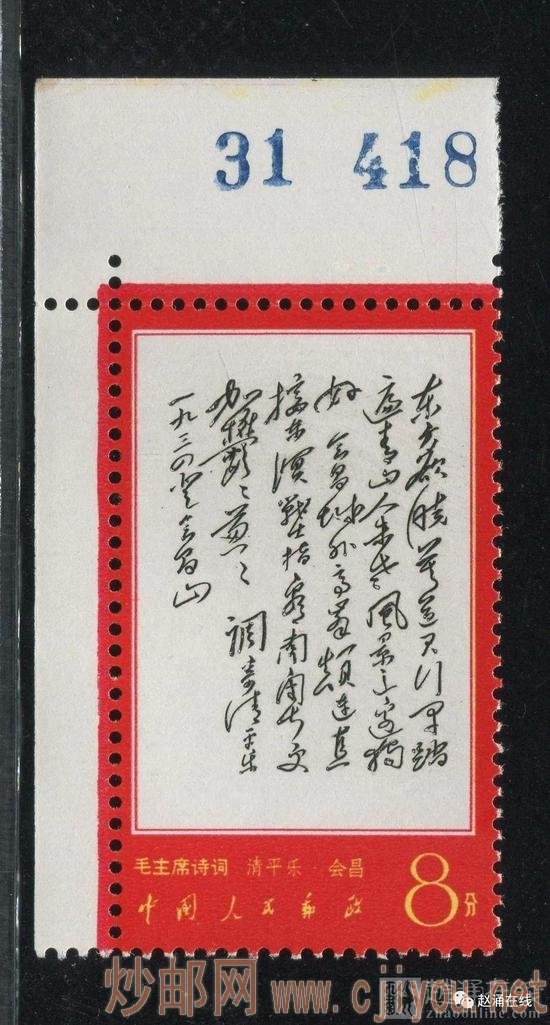 31 418
东方欲晓莫道君行早踏
遍青山人未老風景这邊獨
好 會昌城外高峯顛連直
接东溟戰士指看南粤更
加鬱々葱々 調寄清平乐
一九三四登会昌山
毛主席诗词 清平乐·会昌
中国人民邮政
8分
炒邮网 www.cjiyou.net
赵涌在线
zhaoonline.com